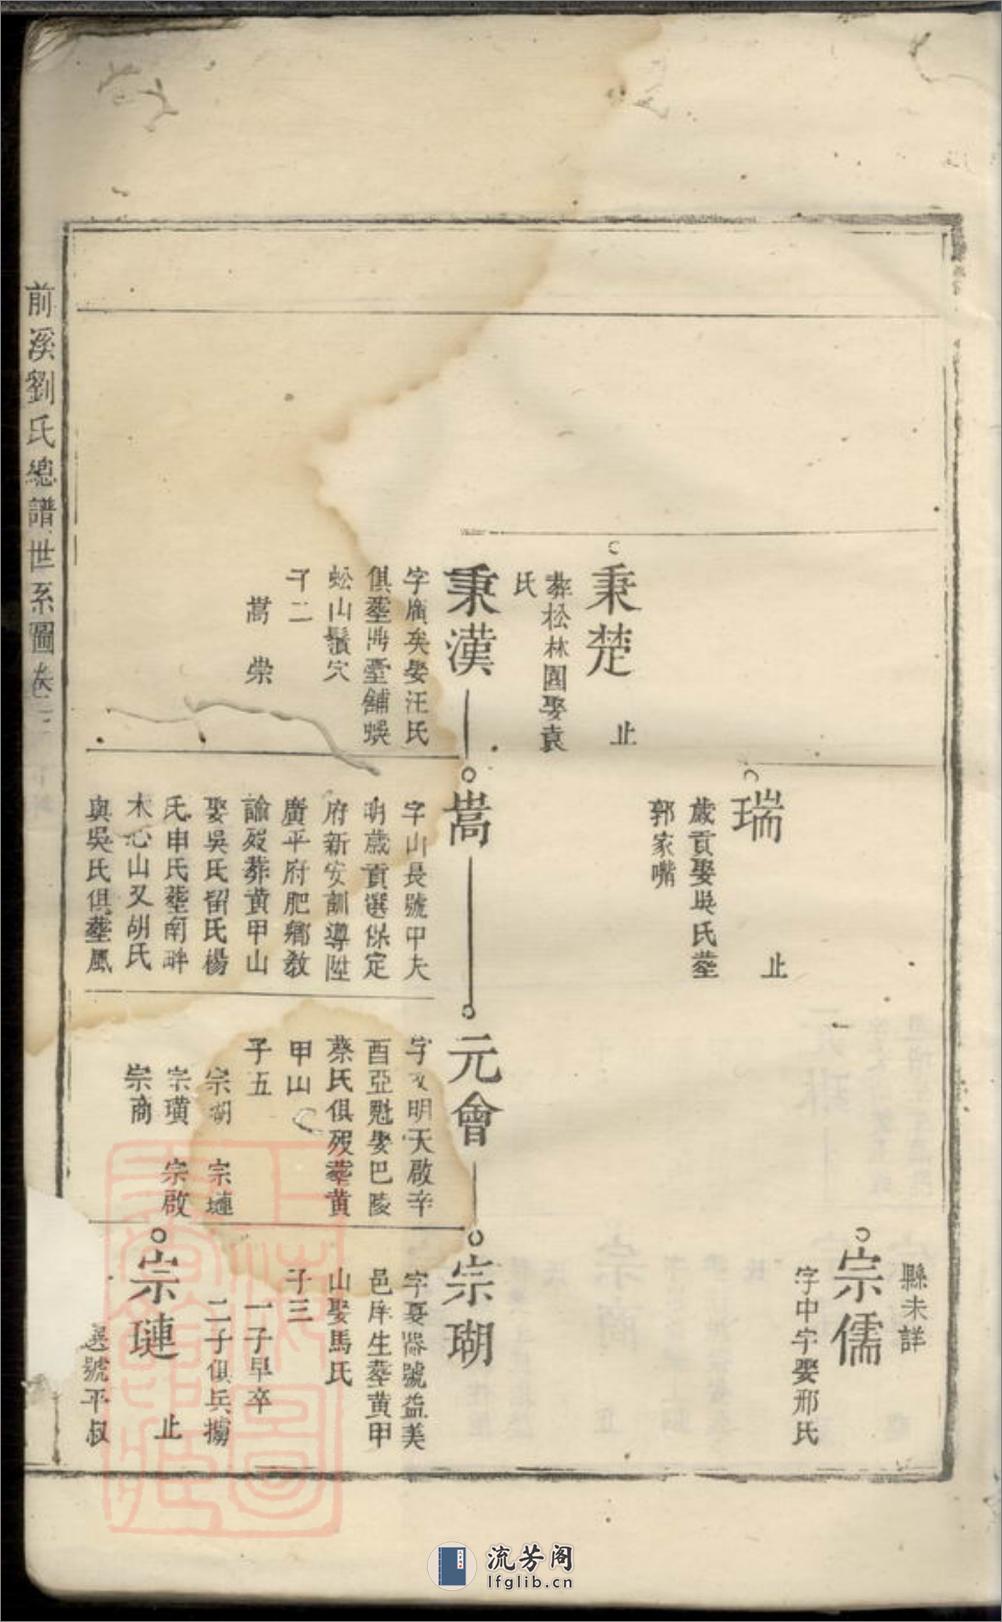 縣未詳
宗儒
字中字娶邢氏
瑞
止
歲貢娶吳氏塟
郭家嘴
秉楚
止
葬松林園娶袁
氏
秉漢
字廣矣娶汪氏
俱塟馬臺舖蜈
蚣山鬚穴
子二
嵩 崇
嵩
字山長號中夫
明歲貢選保定
府新安訓導陞
廣平府肥鄉教
諭歿葬黃甲山
娶吳氏留氏楊
氏申氏塟南畔
木心山又胡氏
與吳氏俱塟鳳
元會
字文明天啟辛
酉亞魁娶巴陵
蔡氏俱歿塟黃
甲山
子五
宗瑚 宗璉
宗璜 宗啟
宗商
宗瑚
字夏器號益美
邑庠生塟黃甲
山娶馬氏
子三
一子早卒
二子俱兵擄
宗璉
止
選號平叔
前溪劉氏總譜世系圖卷二
流芳阁
lfglib.cn